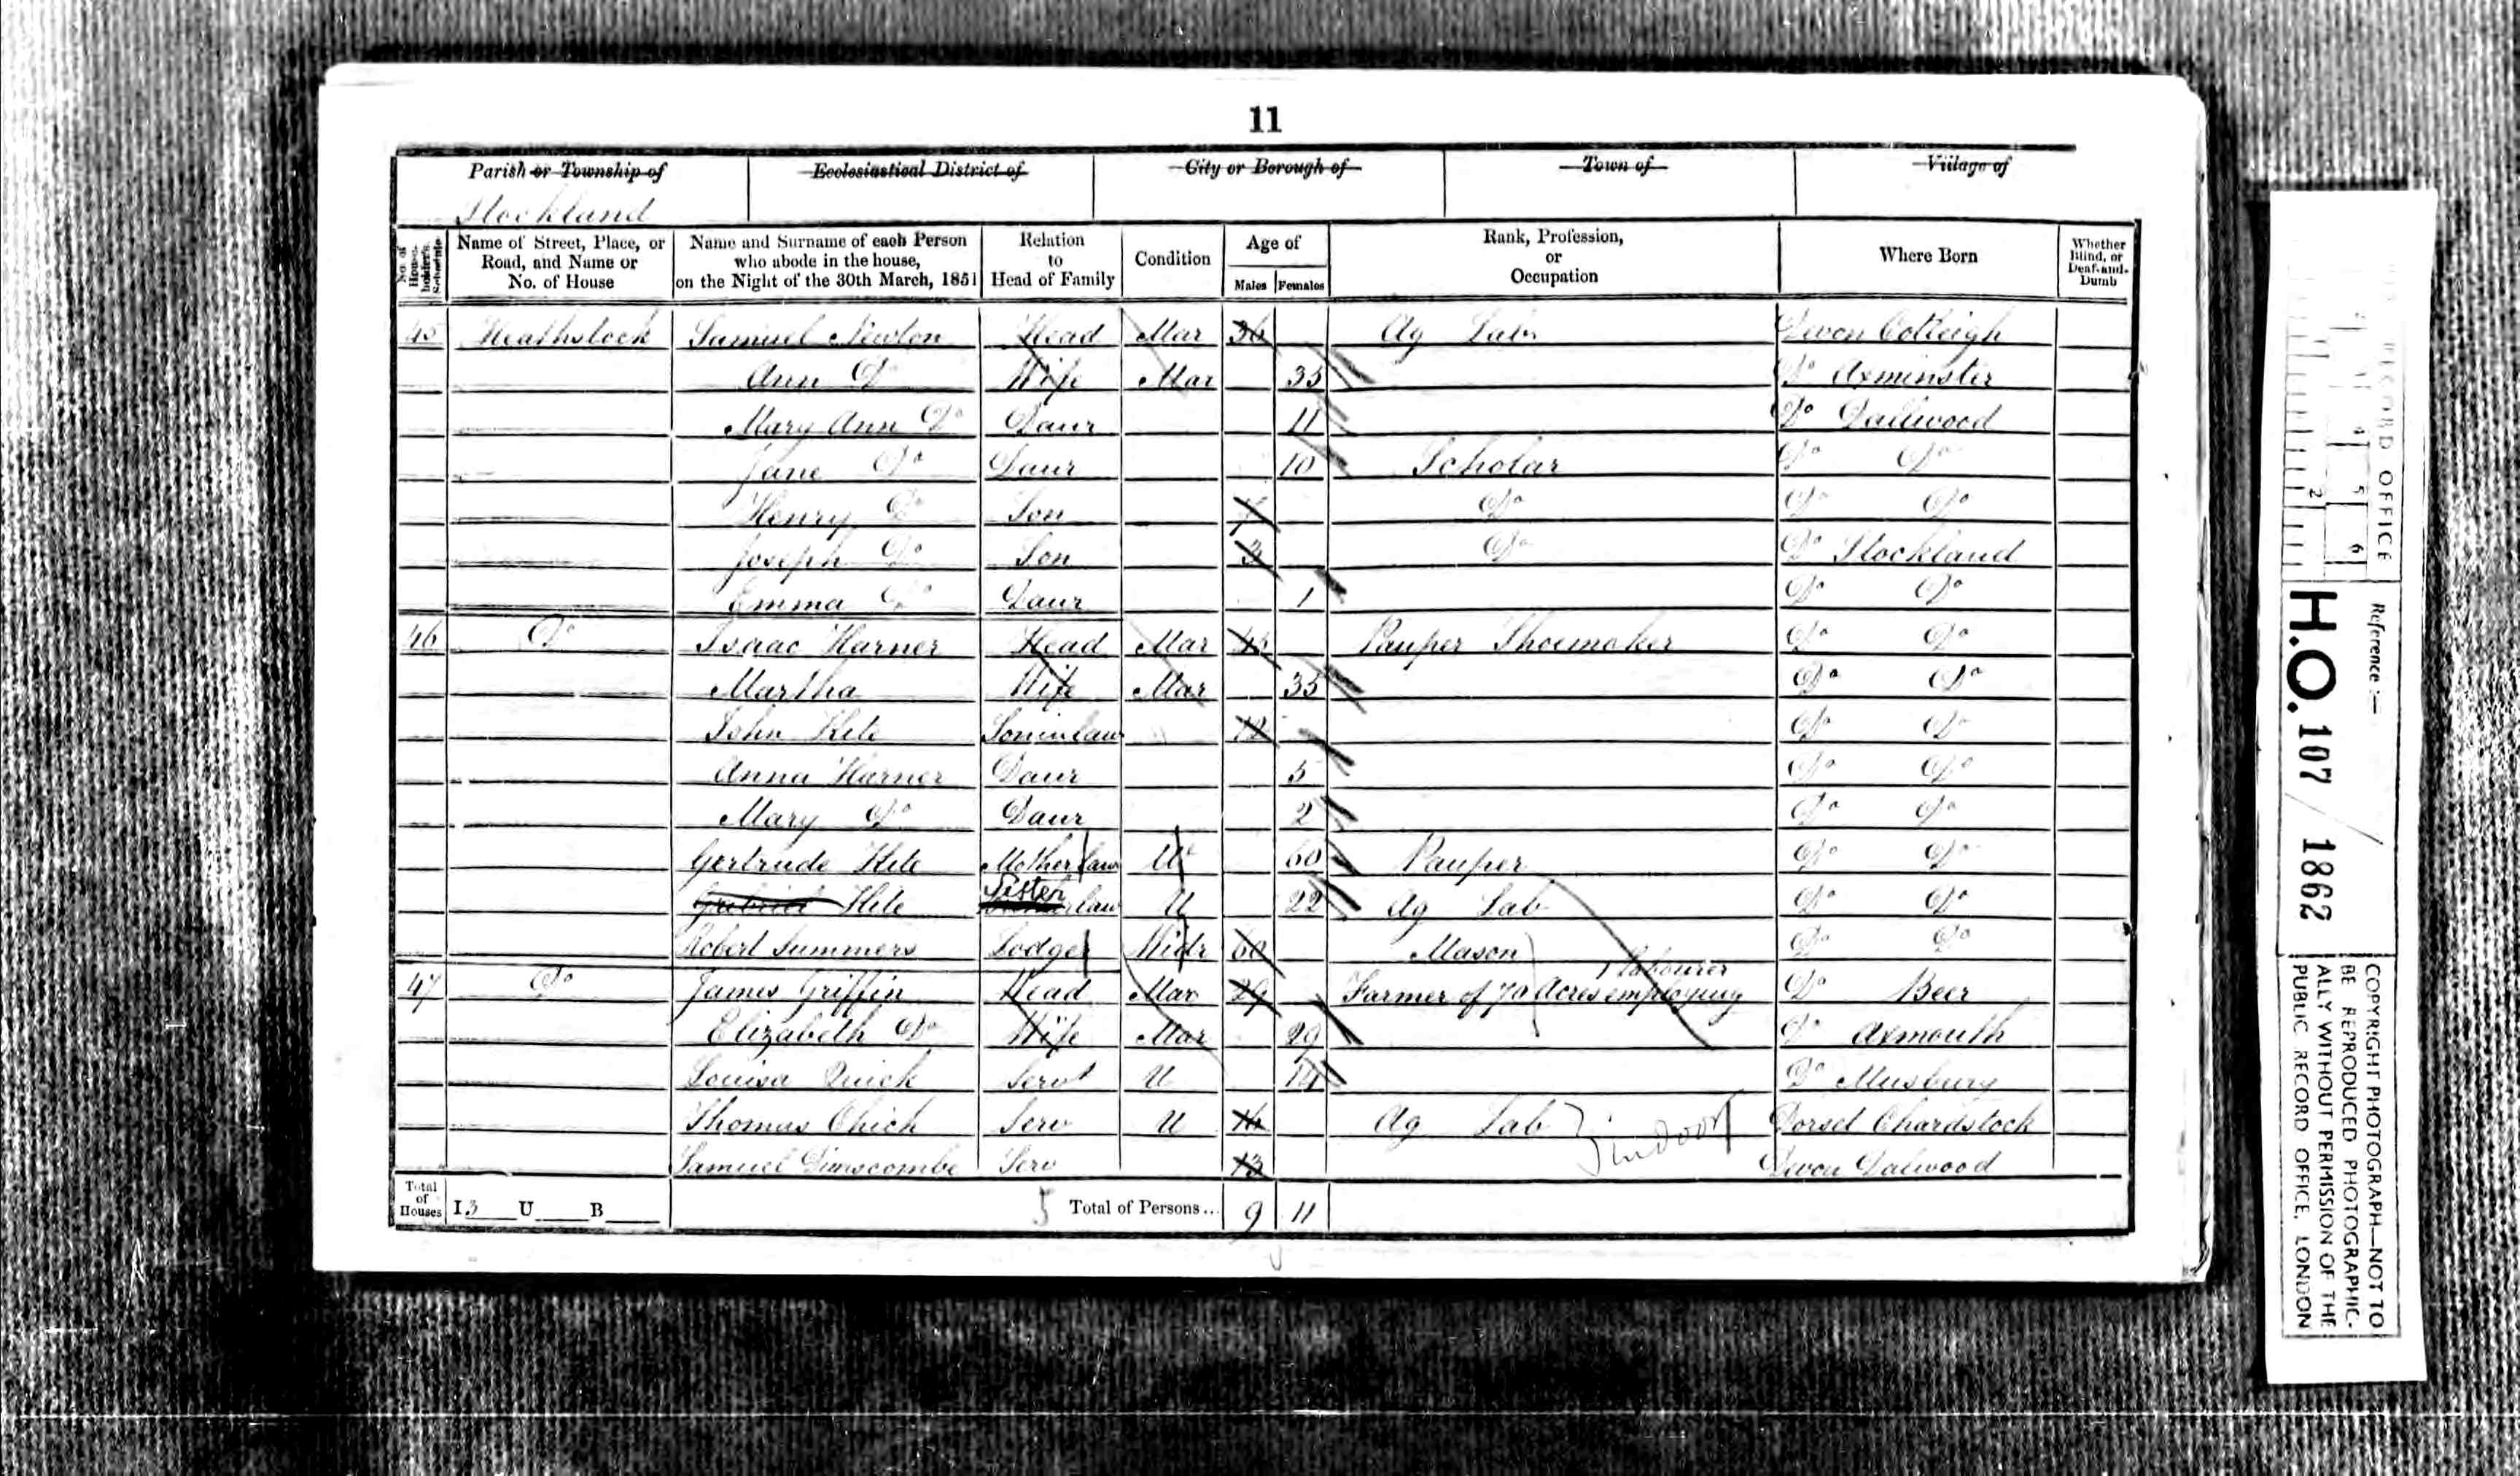 11
Parish or Township of Ecclesiastical District of City or Borough of Town of Village of
Stockland
No. of House-holder's Schedule Name of Street, Place, or Road, and Name or No. of House Name and Surname of each Person who abode in the house, on the Night of the 30th March, 1851 Relation to Head of Family Condition Age of Males Females Rank, Profession, or Occupation Where Born Whether Blind, or Deaf-and-Dumb
45 Heathstock Samuel Newton Head Mar 36 Ag Lab Devon Cotleigh
Ann Do Wife Mar 35 Do Axminster
Mary Ann Do Daur 11 Do Dallwood
Jane Do Daur 10 Scholar Do Do
Henry Do Son Do Do Do
Joseph Do Son 3 Do Do Stockland
Emma Do Daur 1 Do Do
46 Do Isaac Harner Head Mar Pauper Shoemaker Do Do
Martha Wife Mar 35 Do Do
John Kite Soninlaw 12 Do Do
Anna Harner Daur 5 Do Do
Mary Do Daur 2 Do Do
Gertrude Kite Mother law 60 Pauper Do Do
Kite Sister law U 22 Ag Lab Do Do
Robert Summers Lodger Widr 60 Mason Do Do
47 Do James Griffin Head Mar 29 Farmer of 70 Acres employing 1 labourer Do Beer
Elizabeth Do Wife Mar 29 Do Axmouth
Louisa Quick Servt U 14 Do Musbury
Thomas Chick Serv U 16 Ag Lab indoor Dorset Chardstock
Samuel Dimscombe Serv 13 Devon Dalwood
Total of Houses I 3 U B 5 Total of Persons... 9 11
RECORD OFFICE
2 4 5 6
Reference :-
H.O. 107 / 1862
COPYRIGHT PHOTOGRAPH—NOT TO
BE REPRODUCED PHOTOGRAPHIC-
ALLY WITHOUT PERMISSION OF THE
PUBLIC RECORD OFFICE, LONDON